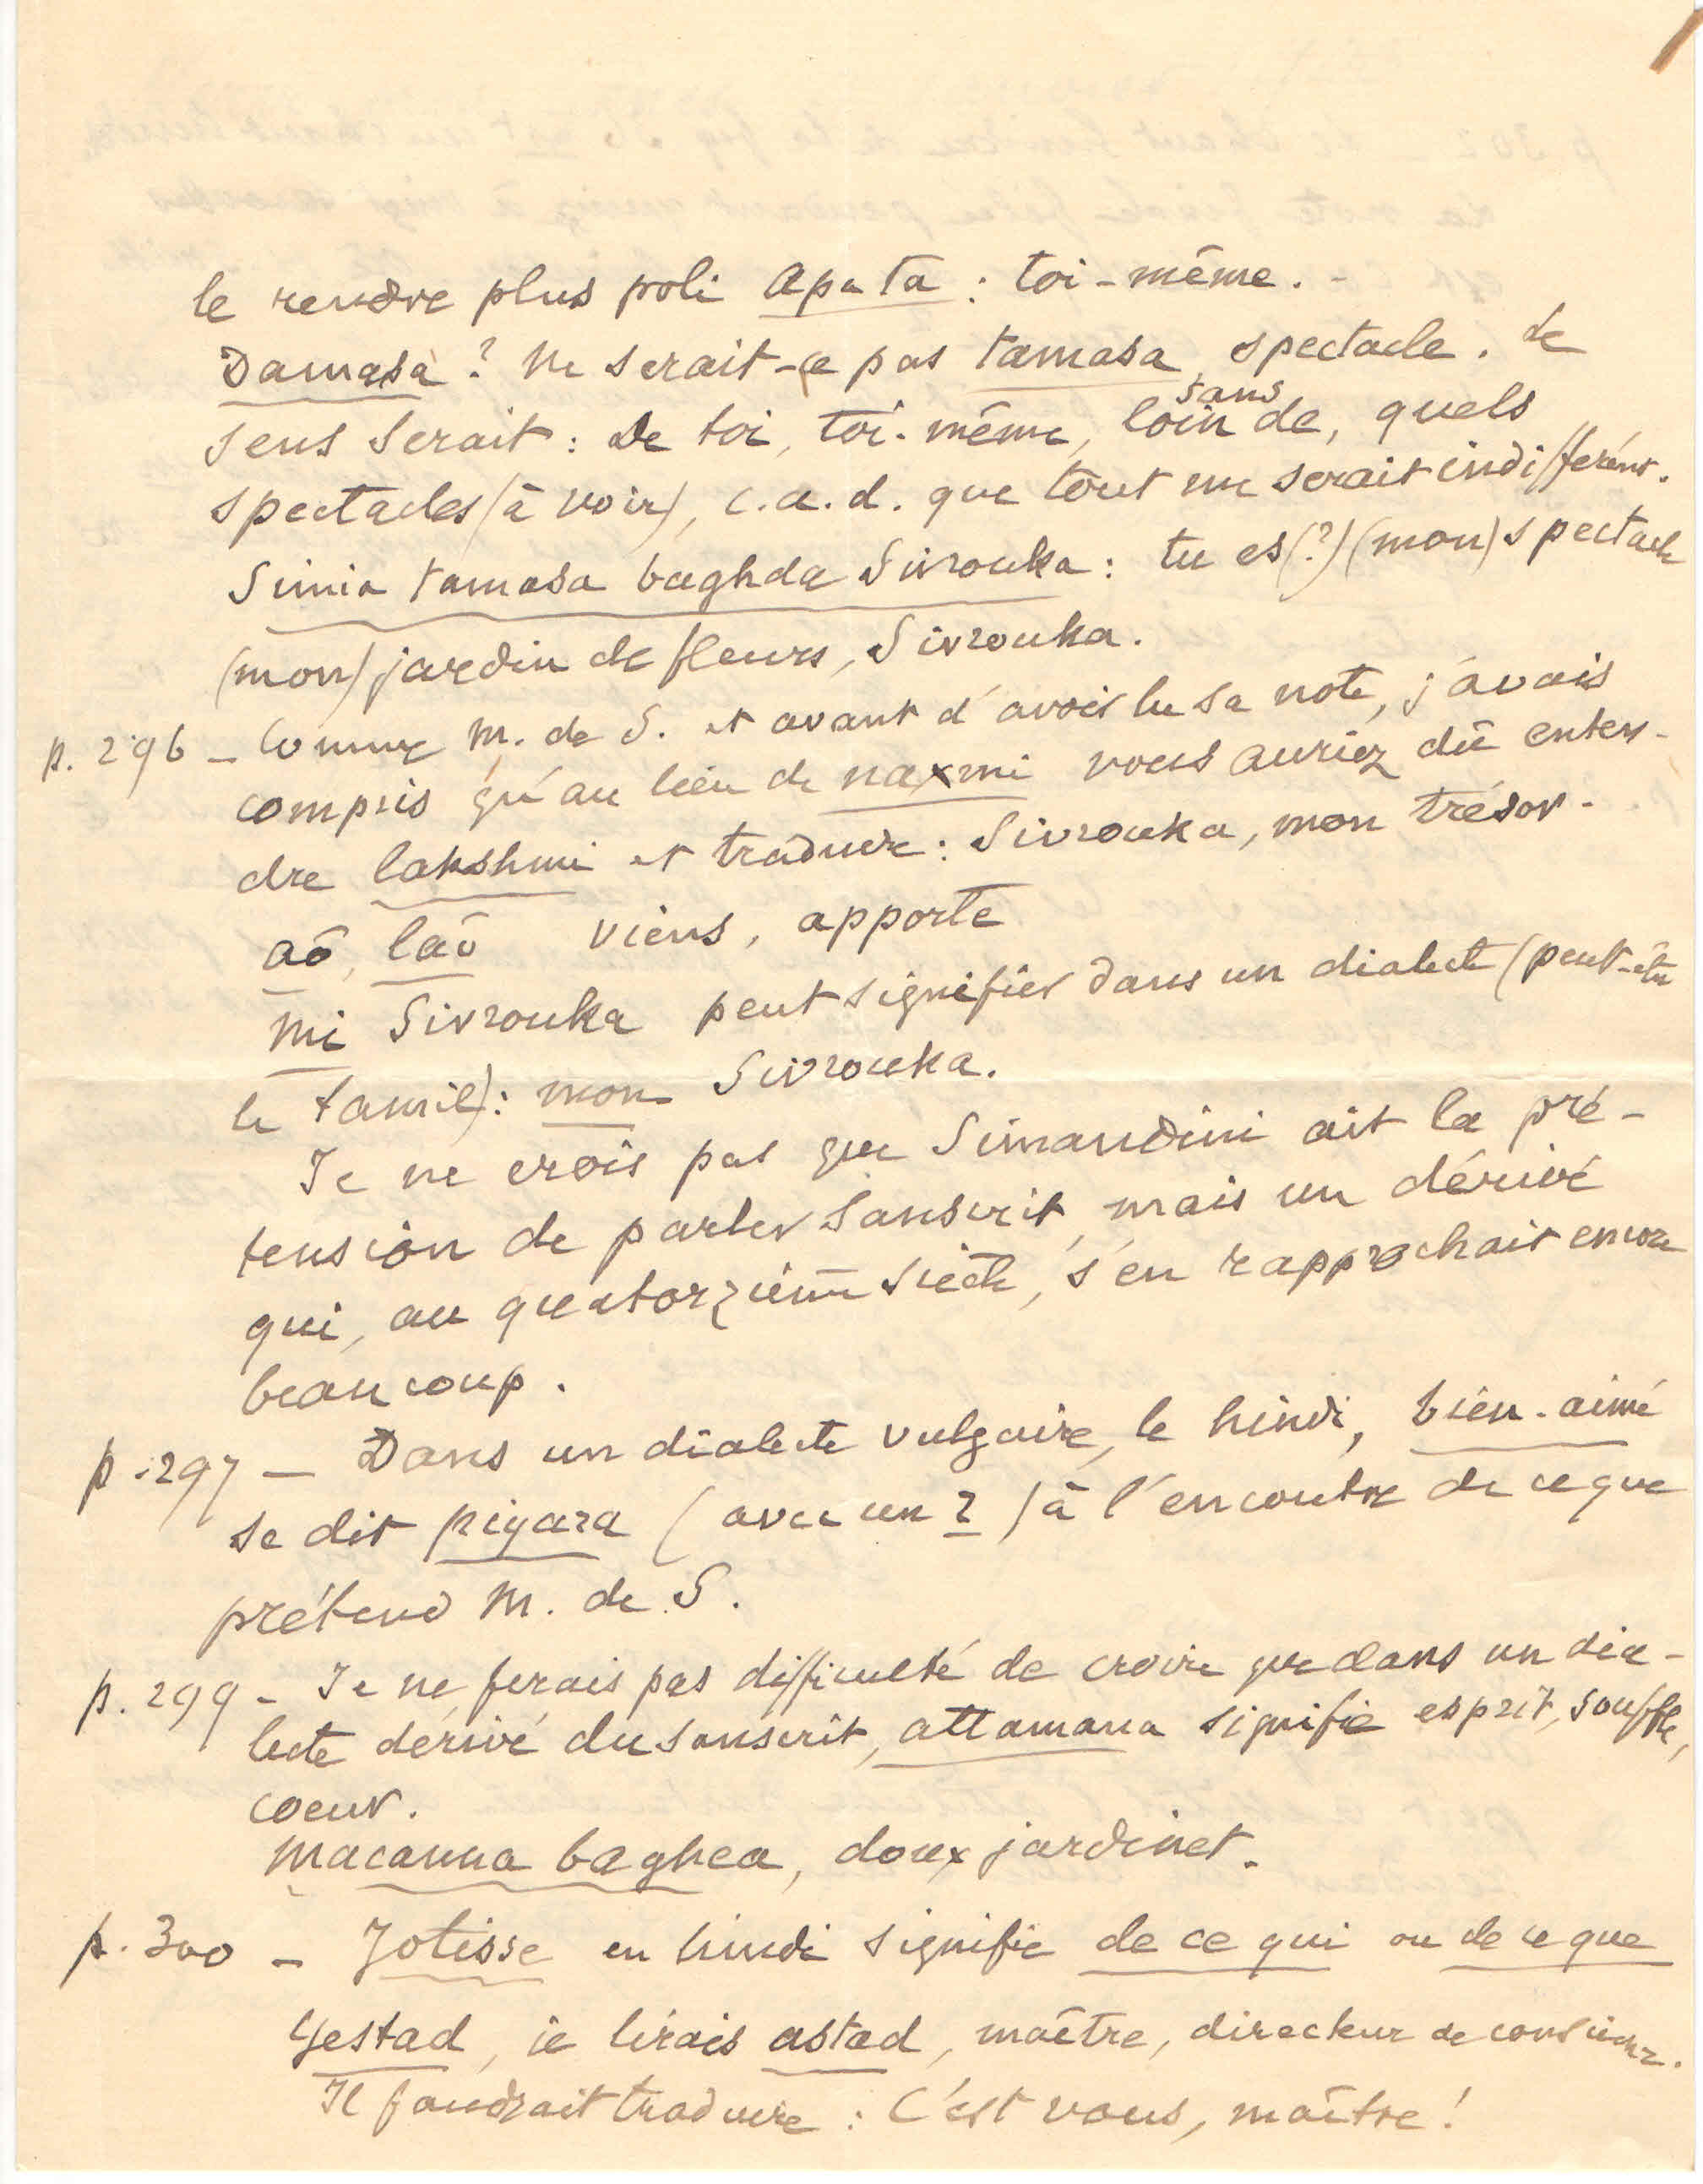 le rendre plus poli apata : toi-même. -
Damasa ? Ne serait-ce pas tamasa, spectacle. Le
sens serait : De toi, toi-même, loin de, quels
sans
spectacles (à voir), c.a.d. que tout me serait indifférent.
Simia tamasa baghda Sivrouka : tu es (?) (mon) spectacle
(mon) jardin de fleurs, Sivrouka.
p. 296 - Comme M. de S. et avant d'avoir lu sa note, j'avais
compris qu'au lieu de naxmi vous auriez dû enten-
dre lakshmi et traduire : Sivrouka, mon trésor -
aô, laô viens, apporte
mi Sivrouka peut signifier dans un dialecte (peut-être
le tamil) : mon Sivrouka.
Je ne crois pas que Simandini ait la pré-
tension de parler sanscrit, mais un dérivé
qui, au quatorzième siècle, s'en rapprochait encore
beaucoup.
p. 297 - Dans un dialecte vulgaire, le hindi, bien-aimé
se dit piyara (avec un r) à l'encontre de ce que
prétend M. de S.
p. 299 - Je ne ferais pas difficulté de croire que dans un dia-
lecte dérivé du sanscrit, attamana signifie esprit, souffle,
coeur.
Macanna baghea, doux jardinet.
p. 300 - Jotisse en hindi signifie de ce qui ou de ce que
Yestad, je lirais astad, maître, directeur de conscience.
Il faudrait traduire : C'est vous, maître !